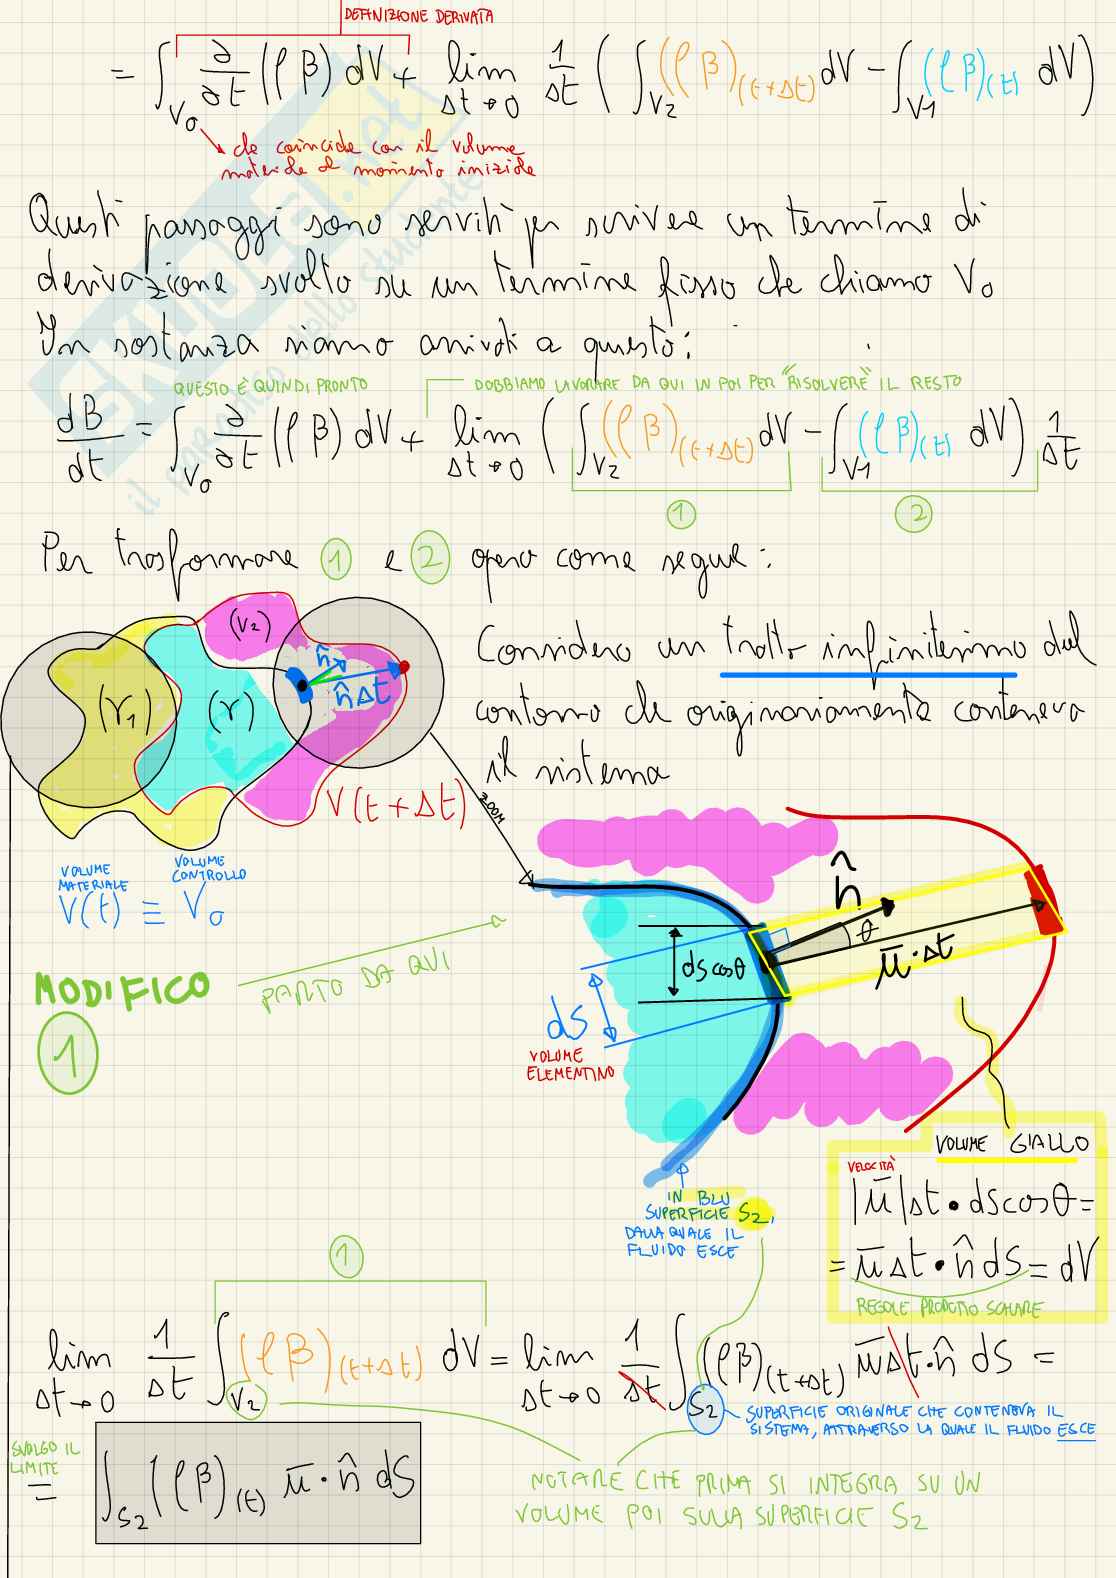 DEFINIZIONE DERIVATA
= ∫_{V₀} ∂/∂t (ρβ) dV + lim_{Δt→0} 1/Δt ( ∫_{V2} (ρβ)_{(t+Δt)} dV − ∫_{V1} (ρβ)_{(t)} dV )
che coincide con il volume
materiale al momento iniziale
Questi passaggi sono serviti per scrivere un termine di
derivazione svolto su un termine fisso che chiamo V₀
In sostanza siamo arrivati a questo:
QUESTO È QUINDI PRONTO
DOBBIAMO LAVORARE DA QUI IN POI PER "RISOLVERE" IL RESTO
dB/dt = ∫_{V₀} ∂/∂t (ρβ) dV + lim_{Δt→0} ( ∫_{V2} (ρβ)_{(t+Δt)} dV − ∫_{V1} (ρβ)_{(t)} dV ) 1/Δt
1
2
Per trasformare 1 e 2 opero come segue:
(V2)
n̂
n̂Δt
(V1)
(V)
V(t+Δt)
Considero un tratto infinitesimo del
contorno che originariamente conteneva
il sistema
ZOOM
VOLUME
MATERIALE
V(t) ≡ V₀
VOLUME
CONTROLLO
n̂
θ
ū·Δt
dS cosθ
dS
MODIFICO
1
PARTO DA QUI
VOLUME
ELEMENTINO
VOLUME GIALLO
VELOCITÀ
|ū|Δt · dS cosθ =
= ūΔt · n̂ dS = dV
REGOLE PRODOTTO SCALARE
IN BLU
SUPERFICIE S2,
DALLA QUALE IL
FLUIDO ESCE
1
lim_{Δt→0} 1/Δt ∫_{V2} (ρβ)_{(t+Δt)} dV = lim_{Δt→0} 1/Δt ∫_{S2} (ρβ)_{(t+Δt)} ūΔt·n̂ dS =
SUPERFICIE ORIGINALE CHE CONTENEVA IL
SISTEMA, ATTRAVERSO LA QUALE IL FLUIDO ESCE
SVOLGO IL
LIMITE
= ∫_{S2} (ρβ)_{(t)} ū·n̂ dS
NOTARE CHE PRIMA SI INTEGRA SU UN
VOLUME POI SULLA SUPERFICIE S2